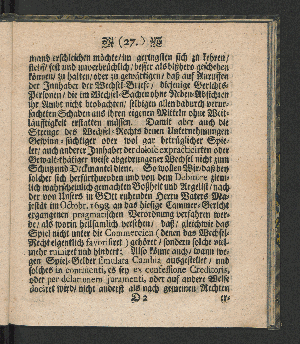 (27.)
mand erschleichen möchte/im geringsten sich zu kehren/
steiff/fest und unverbrüchlich/besser als bißhero geschehen
können/zu halten/oder zu gewärtigen/daß auf Anruffen
der Innhaber der Wechsel-Briefe/diejenige Gerichts-
Persohnen/die em Wechsel-Sachen ohne Neben-Absichten
ihr Ambt nicht beobachten/selbigen allen dadurch verur-
sachten Schaden und ihren eigenen Mitteln ohne Weit-
läufftigkeit erstatten müssen. Damit aber auch die
Strenge des Wechsel-Rechts denen Unternehmungen
Gewinn-süchtiger oder wol gar betrüglicher Spie-
ler/auch anderer Innhaber der dolosè expracticirten oder
Gewalt-thätiger weise abgedrungener Wechsel nicht zum
Schutz und Deckmantel diene. So wollen Wir/daß bey
solcher sich herfürthuenden und von dem Debitore ziem-
lich wahrscheinlich gemachten Boßheit und Arglist/nach
der von Unsers in GOtt ruhenden Herrn Vaters Ma-
jestät im Octobr. 1698. an das hiesige Cammer-Gericht
ergangenen pragmatischen Verordnung verfahren wer-
de/als worin heilsamlich versehen/daß/gleichwie das
Spiel nicht unter die Commercien (denen das Wechsel-
Recht eigentlich favorisiret) gehöret/sondern solche viel-
mehr ruiniret und hindert: Also könne auch/wann we-
gen Spiel-Gelder simulata Cambia ausgestellet/und
solches in continenti, es sey ex confessione Creditoris,
oder per delationem juramenti, oder auf andere Weise
docêret wird/nicht anderst als nach gemeinen Rechten
D 2